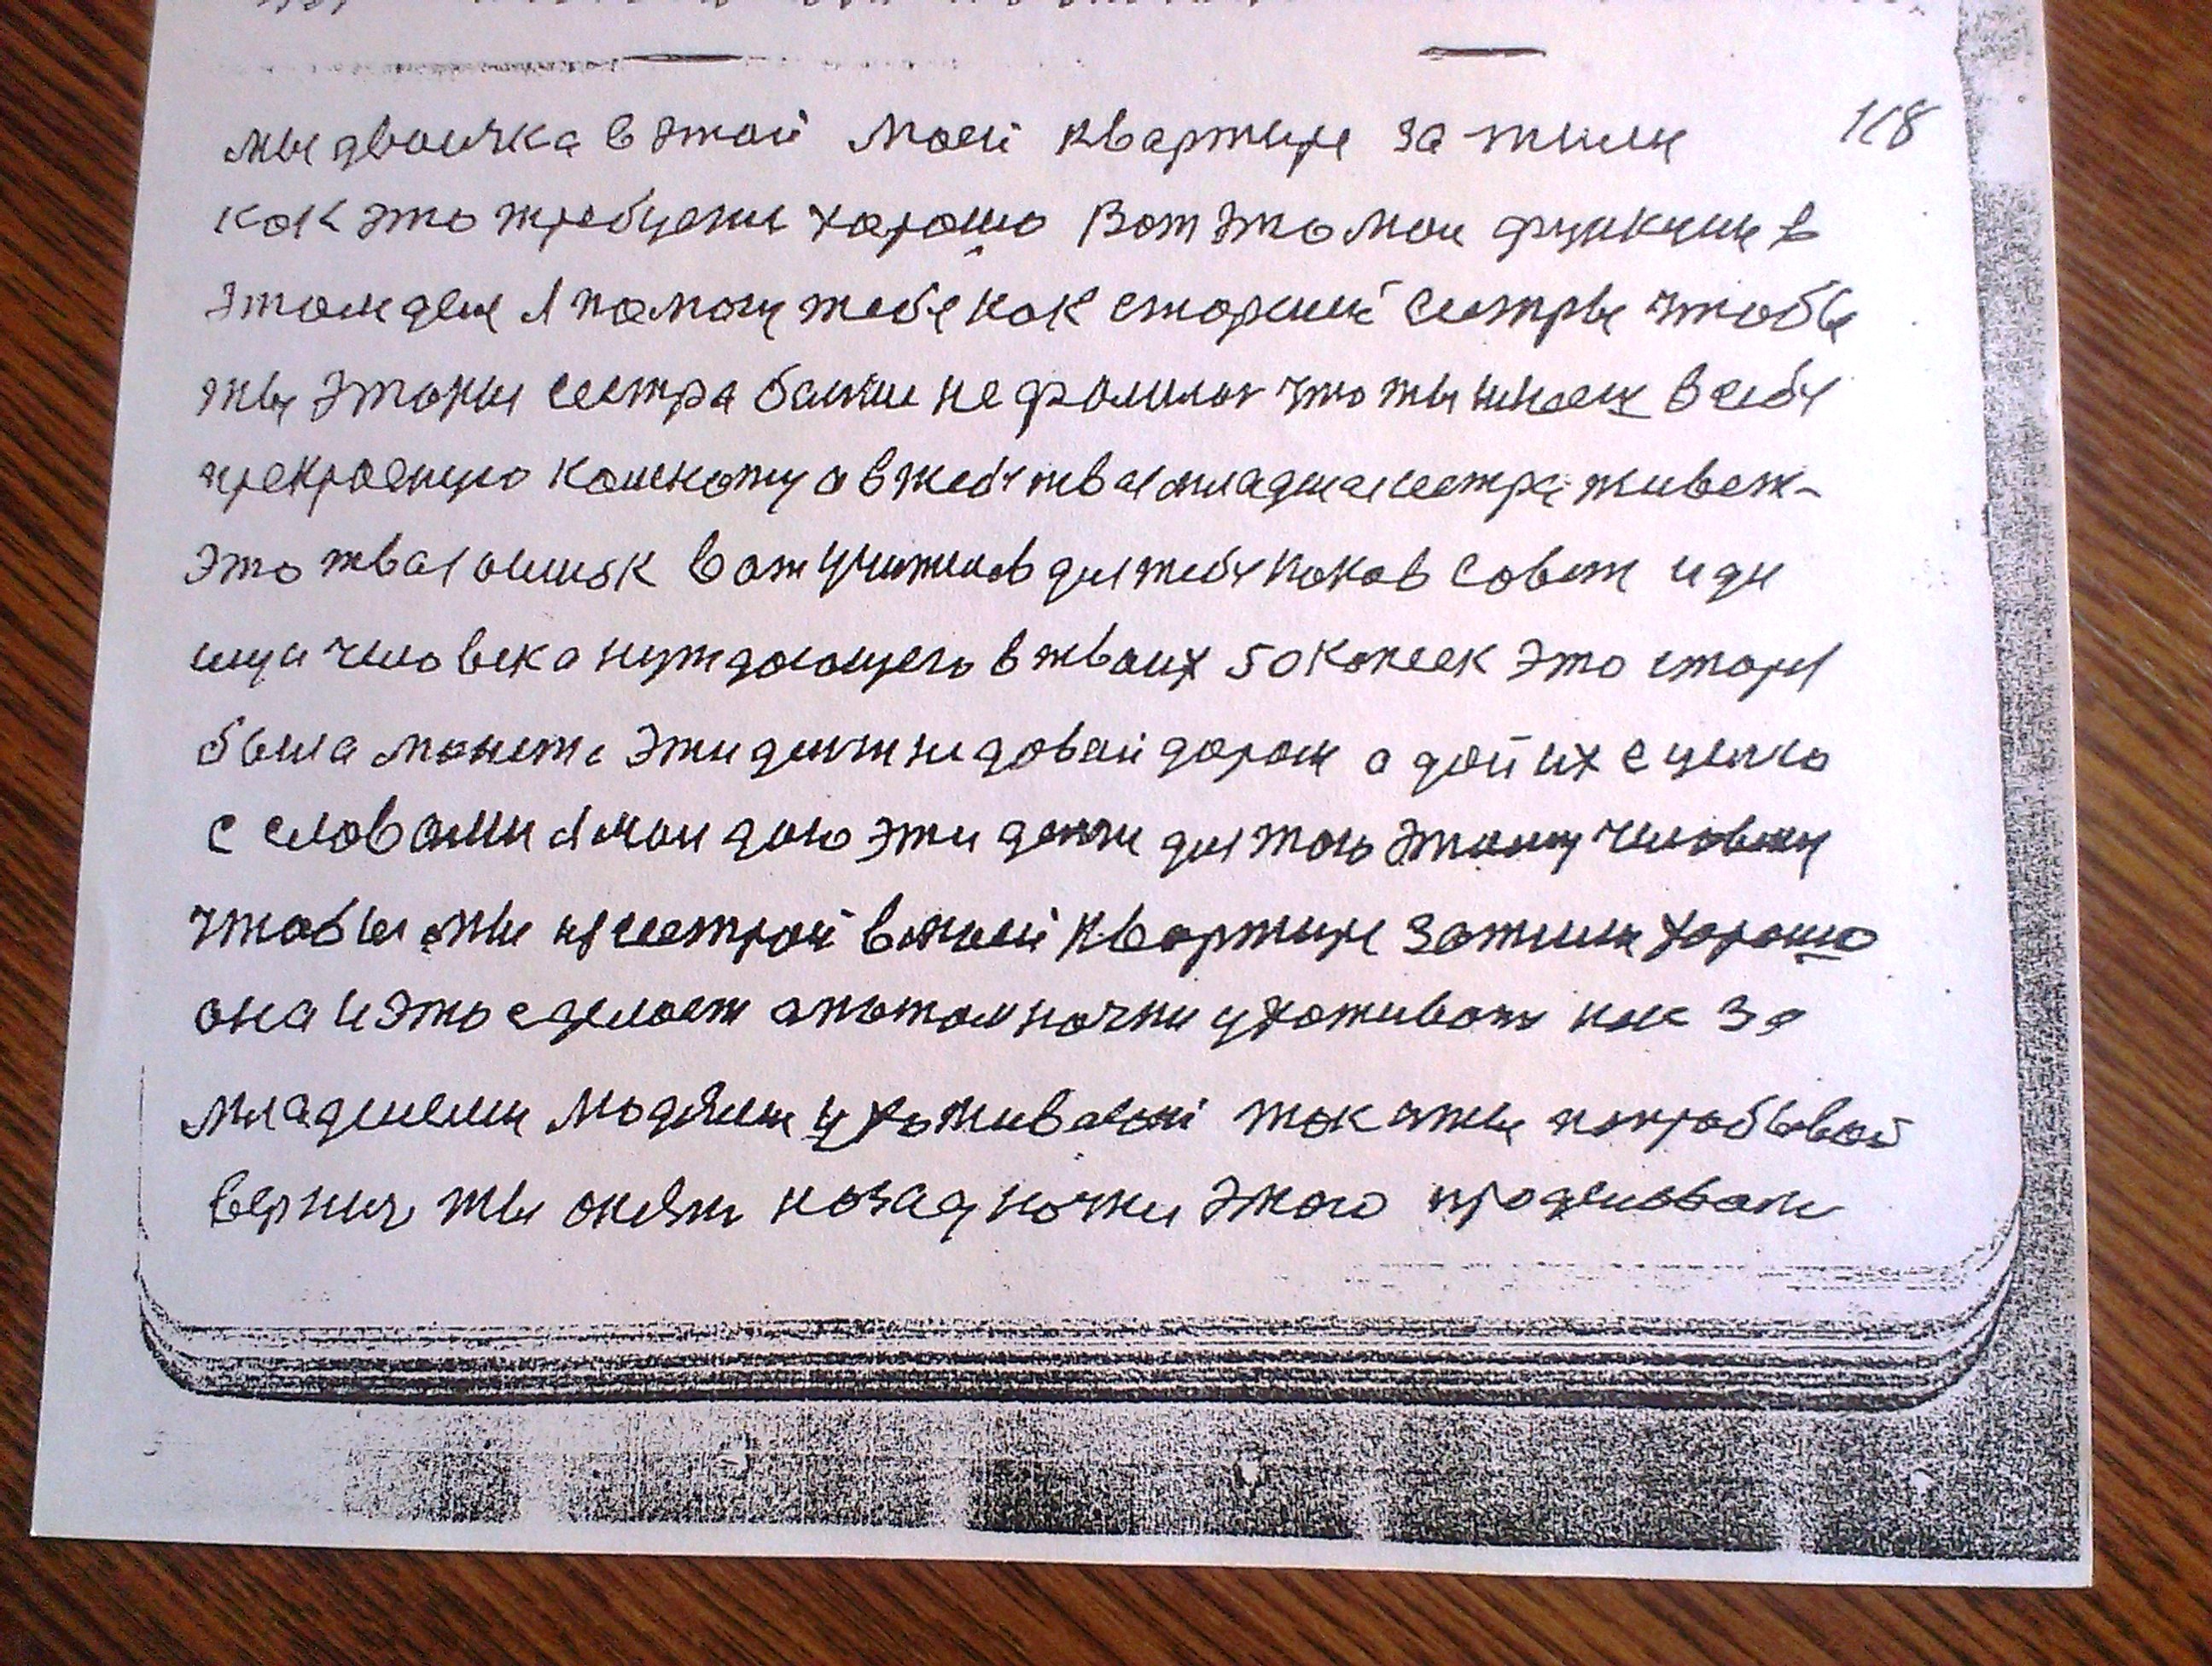 118
мы двоичка в этой моей квартире за жили
как это требуется хорошо Вот это мои функции в
этом деле Я помогу тебе как старшей сестры чтобы
ты этаны сестра больше не что ты имеещ в себе
прекрасную комнату а в тебе твая младшая сестра живет
это твая ошибк вот учитилов для тебя таков совет иди
ищи человека нуждающего в твоих 50 копеек это старая
была монета эти деньги не довай даром а дай их с целью
с словами я мол даю эти деньги для того этому человеку
чтобы мы и сестрой в моей квартире зажили хорошо
она и это сделает апотом начни ухаживать как за
младшеми людями ухоживаеш так и ты попробывай
вернись ты опять назад начни этого проделовать